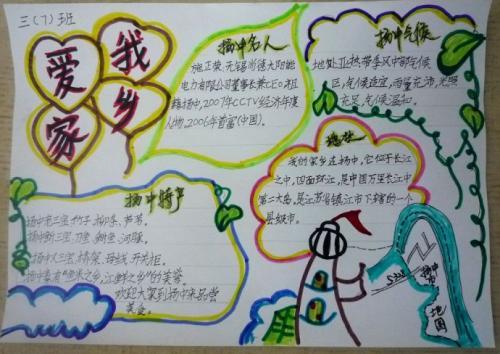 三(7)班
我爱家乡
扬中名人
施正荣,无锡尚德太阳能
电力有限公司董事长兼CEO,祖
籍扬中,2007年CCTV经济年度
人物,2006年首富(中国)。
扬中气候
地处亚热带季风中部气候
区,气候适宜,雨量充沛,光照
充足,气候温和。
我的家乡在扬中,它位于长江
之中,四面环江,是中国万里长江中
第二大岛,是江苏省镇江市下辖的一个
县级市。
扬中特产
扬中老三宝:竹子、柳条、芦苇。
扬中新三宝:刀鱼、鲥鱼、河豚。
扬中工三宝:桥架、母线、开关柜。
扬中素有“鱼米之乡,江鲜之乡”的美誉。
欢迎大家到扬中来品尝
美食。
扬中
地图